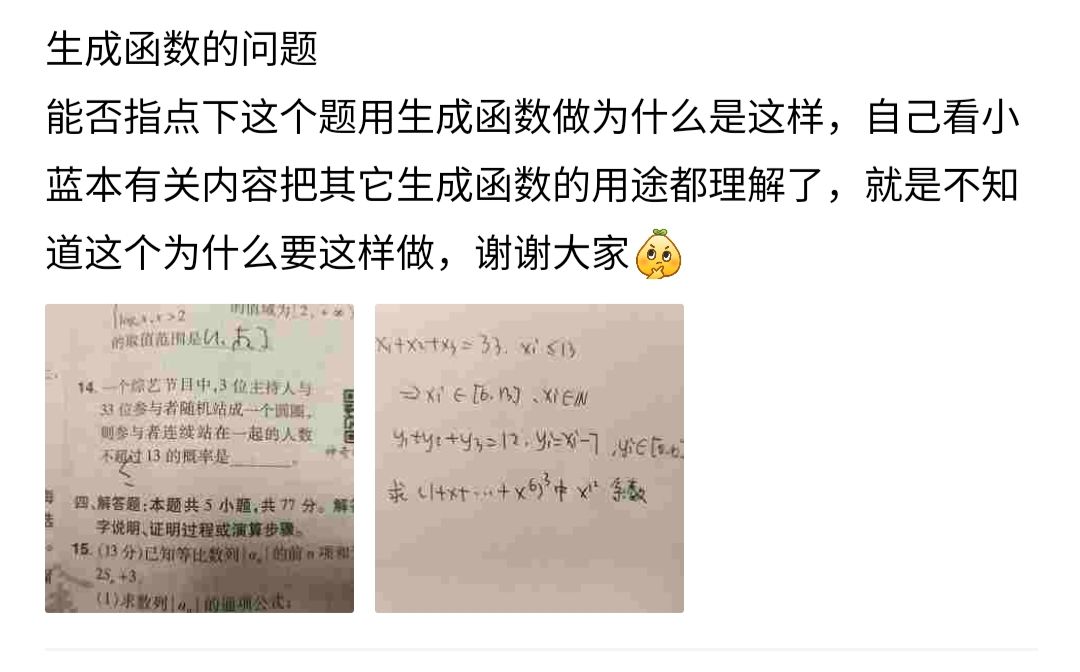 生成函数的问题
能否指点下这个题用生成函数做为什么是这样，自己看小
蓝本有关内容把其它生成函数的用途都理解了，就是不知
道这个为什么要这样做，谢谢大家
的值域为[2,+∞)
的取值范围是
14. 一个综艺节目中,3 位主持人与
33 位参与者随机站成一个圆圈,
则参与者连续站在一起的人数
不超过 13 的概率是______.
四、解答题:本题共 5 小题,共 77 分。解
字说明、证明过程或演算步骤。
15. (13 分)已知等比数列{aₙ}的前 n 项和
2Sₙ+3
(1)求数列{aₙ}的通项公式;
x₁+x₂+x₃=33. xi≤13
⇒xi∈[6,13]、xi∈N
y₁+y₂+y₃=12, yi=xi-7
求(1+x+…+x⁶)³中x¹²系数